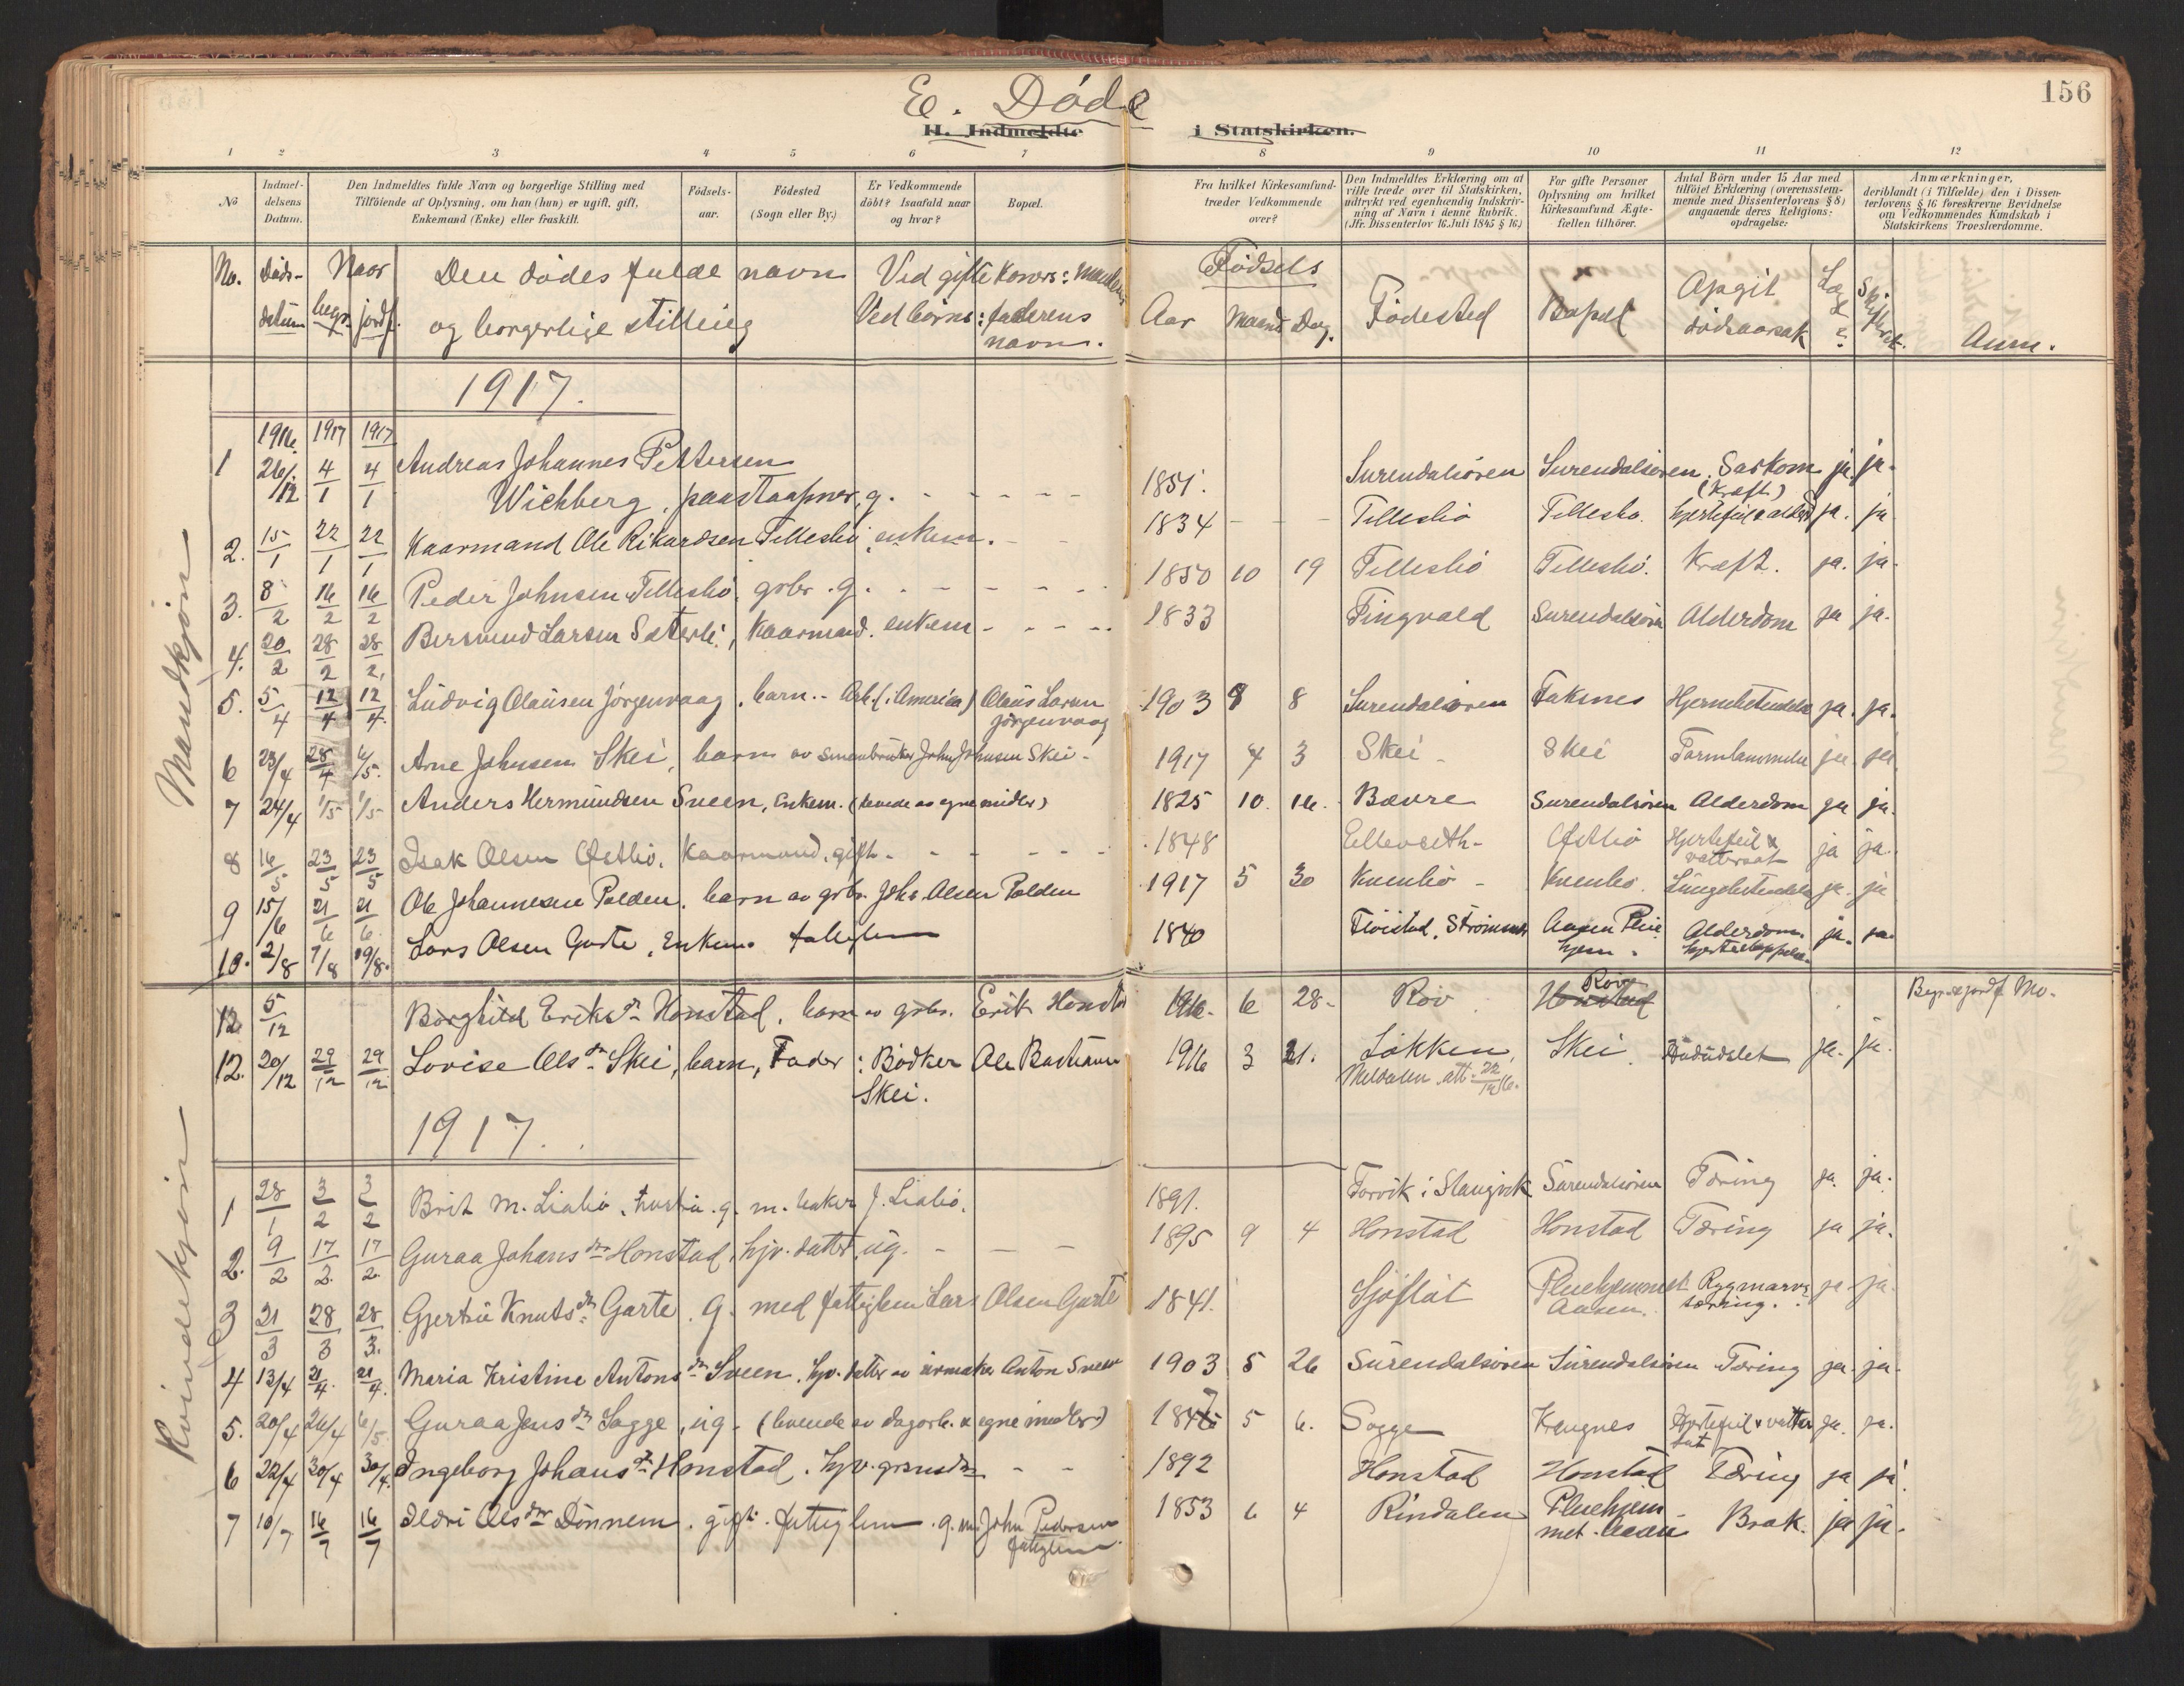 156
E. Døde
II. Indmeldte i Statskirken.
1 2 3 4 5 6 7 8 9 10 11 12
No
Indmeldelsens Datum.
Den Indmeldtes fulde Navn og borgerlige Stilling med
Tilföiende af Oplysning, om han (hun) er ugift, gift,
Enkemand (Enke) eller fraskilt.
Födselsaar.
Födested
(Sogn eller By.)
Er Vedkommende
döbt? Isaafald naar
og hvor?
Bopæl.
Fra hvilket Kirkesamfund
træder Vedkommende
over?
Den Indmeldtes Erklæring om at
ville træde over til Statskirken,
udtrykt ved egenhændig Indskrivning
af Navn i denne Rubrik.
(Jfr. Dissenterlov 16 Juli 1845 § 16.)
For gifte Personer
Oplysning om hvilket
Kirkesamfund Ægtefællen
tilhörer.
Antal Börn under 15 Aar med
tilföiet Erklæring (overensstemmende
med Dissenterlovens § 8)
angaaende deres Religionsopdragelse:
Anmærkninger,
deriblandt (i Tilfælde) den i Dissenterlovens
§ 16 foreskrevne Bevidnelse
om Vedkommendes Kundskab i
Statskirkens Troeslærdomme.
No. Døds- Naar Den dødes fulde navn Ved gifte koners: mandens
datum begr. jordf. og borgerlige stilling Ved børns: faderens navn.
Fødsels
Aar Maaned Dag. Fødested Bopæl Opgit dødsaarsak Læge? Skifteret. Anm.
Mandkjøn
1917.
1916. 1917 1917
1 26/12 4/1 4/1 Andreas Johannes Pettersen
Wichberg, poståpner, g. 1851. Surendalsøren Surendalsøren Sarkom (Kræft) ja ja.
2. 15/1 22/1 22/1 Kaarmand Ole Rikardsen Telleslió, enkem. 1834 Telleslió Telleslió. hjertefeil & alderd ja. ja
3. 8/2 16/2 16/2 Peder Johnsen Telleslió, gbr. g. 1850 10 19 Telleslió Telleslió. Kræft. ja. ja.
4. 20/2 28/2 28/2 Bersvend Larsen Sæterli, Kaarmand. enkem 1833 Tingvold Surendalsøren Alderdom ja ja.
5. 5/4 12/4 12/4. Ludvig Olausen Jørgenvaag, barn. Arb. (i America) Olaus Larsen Jørgenvaag 1903 8 8 Surendalsøren Taknes Hjernebetændelse ja. ja.
6 23/4 28/4 6/5. Arne Johnsen Skei, barn av smaabruker John Johnsen Skei. 1917 4 3 Skei Skei Tarmlammelse ja ja.
7 24/4 1/5 1/5 Anders Hermundsen Sveen, Enkem. (levede av egne midler) 1825 10. 16. Bævre Surendalsøren Alderdom ja ja.
8 16/5 23/5 23/5 Isak Olsen Østlió, Kaarmand, gift. 1848 Ellevseth Østlió Hjertefeil & vattersot ja ja.
9 15/6 21/6 21/6. Ole Johannesen Polden, barn av gbr. Johs Olsen Polden 1917 5 30 Kvenlió Kvenlió. Lungebetændelse ja. ja
10. 2/8 7/8 19/8. Lars Olsen Garte, Enkem. fattiglem 1840 Fløistad, Strømmen Aasen Pleiehjem. Alderdom. ja. ja.
Kvindekjøn
12 5/12 Borghild Eriksdtr Honstad, barn av gbr. Erik Honstad 1916. 6 28. Røv Honstad Røv Begr. & jordf Mo.
12. 20/12 29/12 29/12 Lovise Olsdtr Skei, barn, Fader: Bødker Ole Bastiansen
Skei. 1916 3 21. Løkken, Meldalen Skei ja. ja.
1917.
1 28/1 3/2 3/2 Brit M. Lialió, hustru. g. m. baker J. Lialió. 1891. Torvik i Stangvik Surendalsøren Tæring ja. ja.
2. 9/2 17/2. 17/2. Guraa Johansdtr Honstad, hjv. datter, ug. 1895 9 4 Honstad Honstad Tæring ja ja.
3 21/3 28/3 28/3. Gjertru Knutsdtr Garte. g. med fattiglem Lars Olsen Garte 1841. Sjøflot Pleiehjemmet Aasen. Rygmarvstæring. ja ja.
4 13/4 21/4. 21/4. Maria Kristine Antonsdtr Sveen, hjv. datter av urmaker Anton Sveen 1903 5 26 Surendalsøren Surendalsøren Tæring ja. ja.
5. 20/4 26/4 6/5 Guraa Jensdtr Sogge, ug. (levende av dagarb. & egne midler) 1847 5 6. Sogge Krangnes Hjertefeil & vattersot ja. ja.
6 22/4 30/4 30/4. Ingeborg Johansdtr Honstad. hjv. grsmdtr 1892 Honstad Honstad Tæring ja ja!
7 10/7 16/7 16/7 Ildri Olsdtr Dønnem. gift. fattiglem. g. m. John Pedersen fattiglem. 1853 6 4 Rindalen Pleiehjemmet Aasen Brok. ja ja.